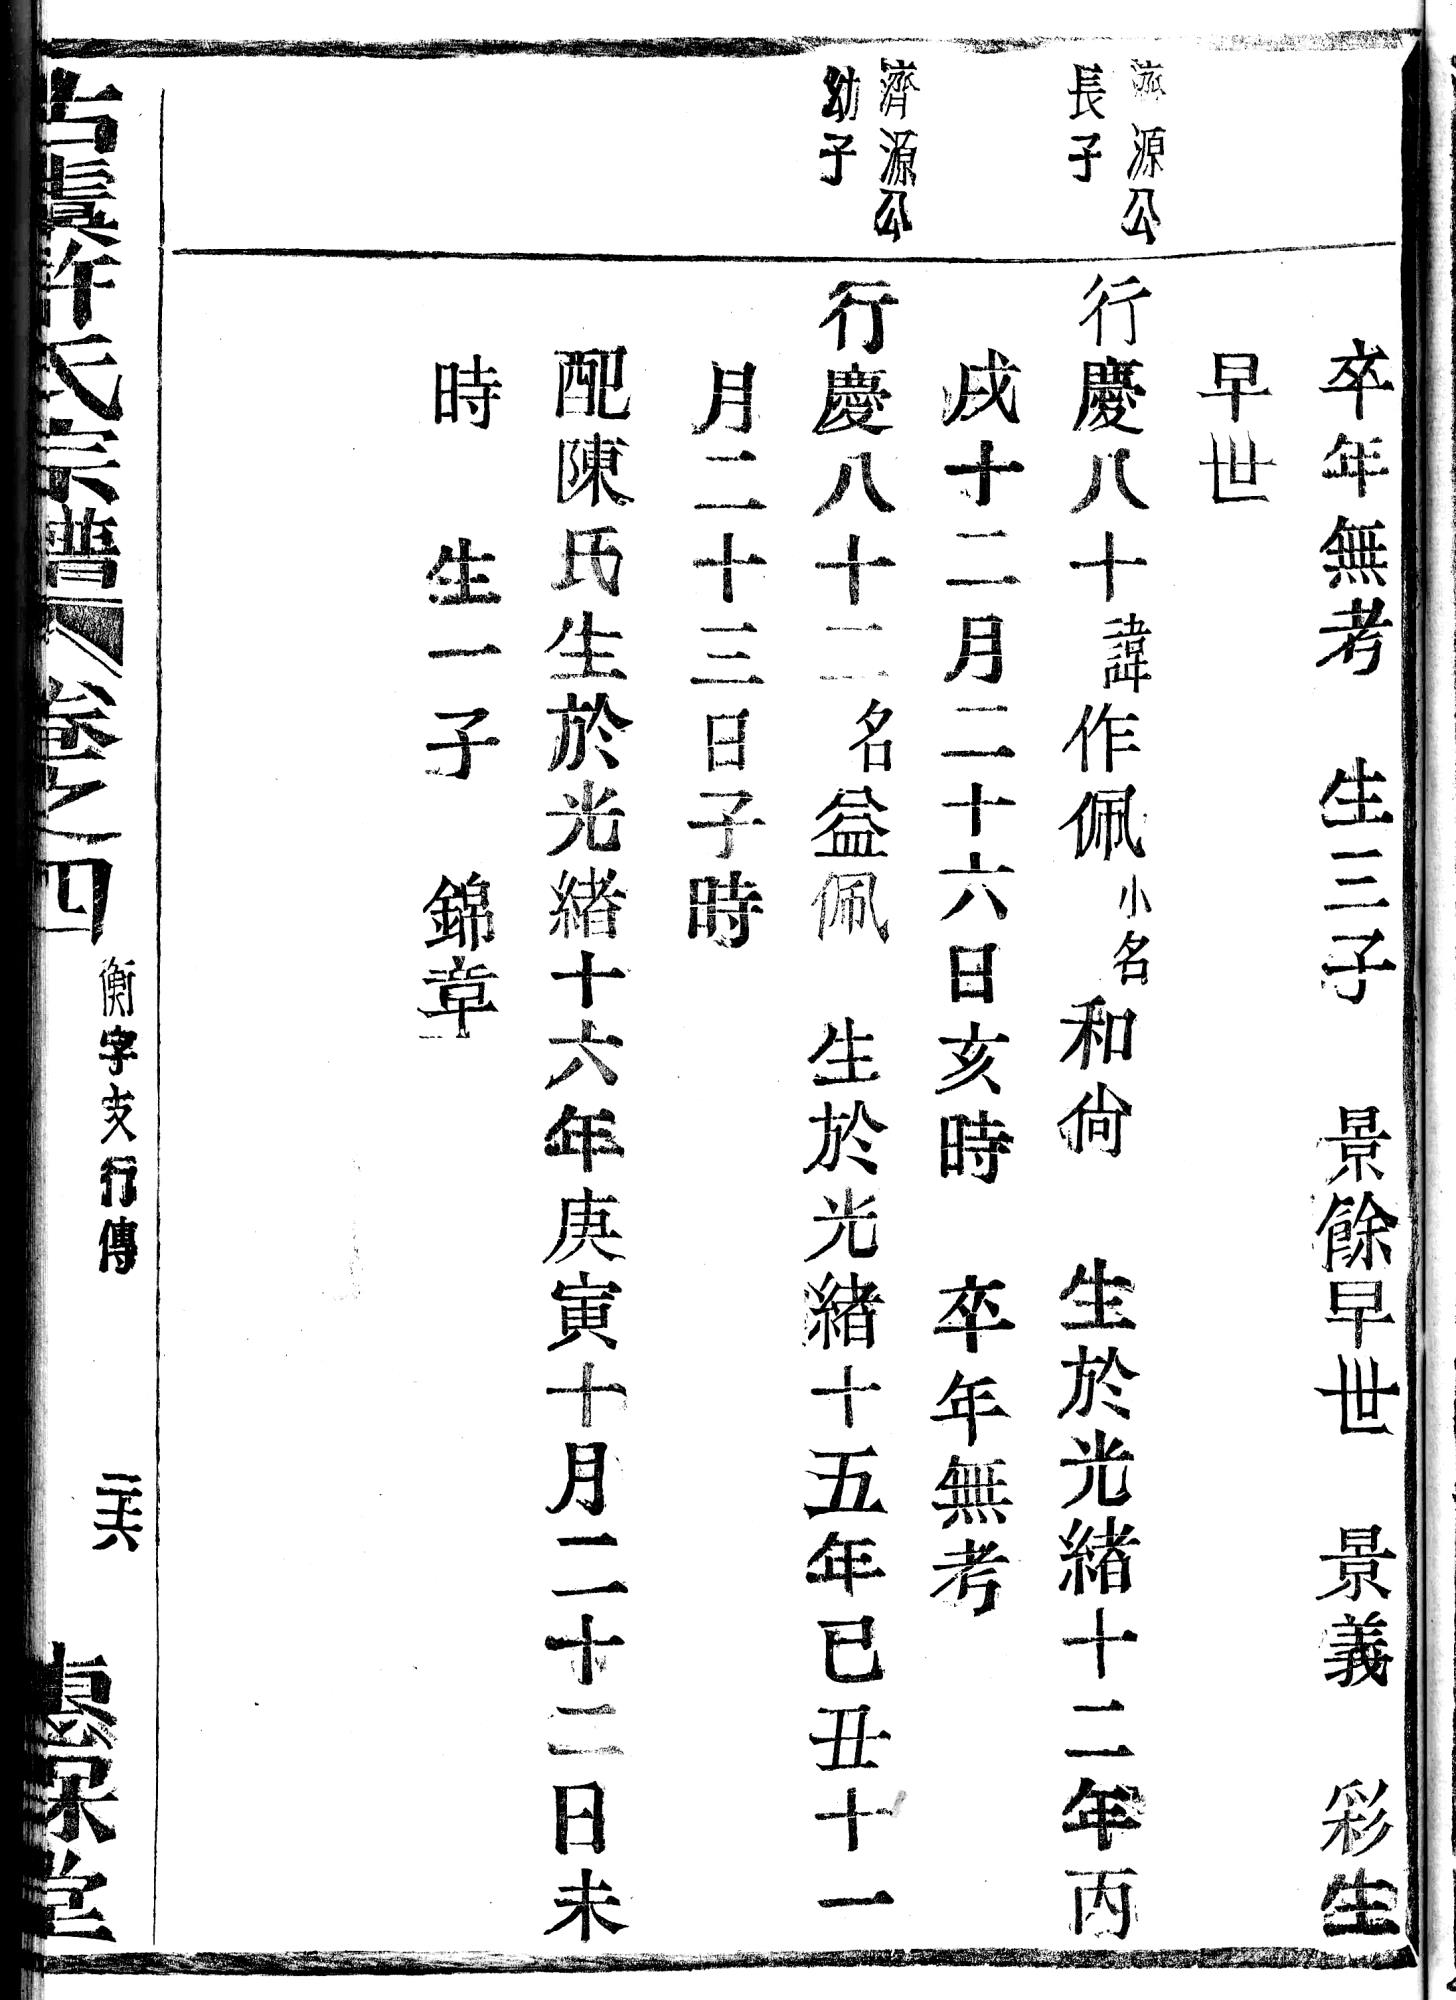 卒年無考　生三子　景餘早世　景義　彩生
早世
濟源公
長子
行慶八十諱作佩小名和尙　生於光緒十二年丙
戌十二月二十六日亥時　卒年無考
濟源公
幼子
行慶八十二名益佩　生於光緒十五年已丑十一
月二十三日子時
配陳氏生於光緒十六年庚寅十月二十二日未
時　生一子　錦章
古虞許氏宗譜　卷之四　衡字支行傳　二十六　惠保堂